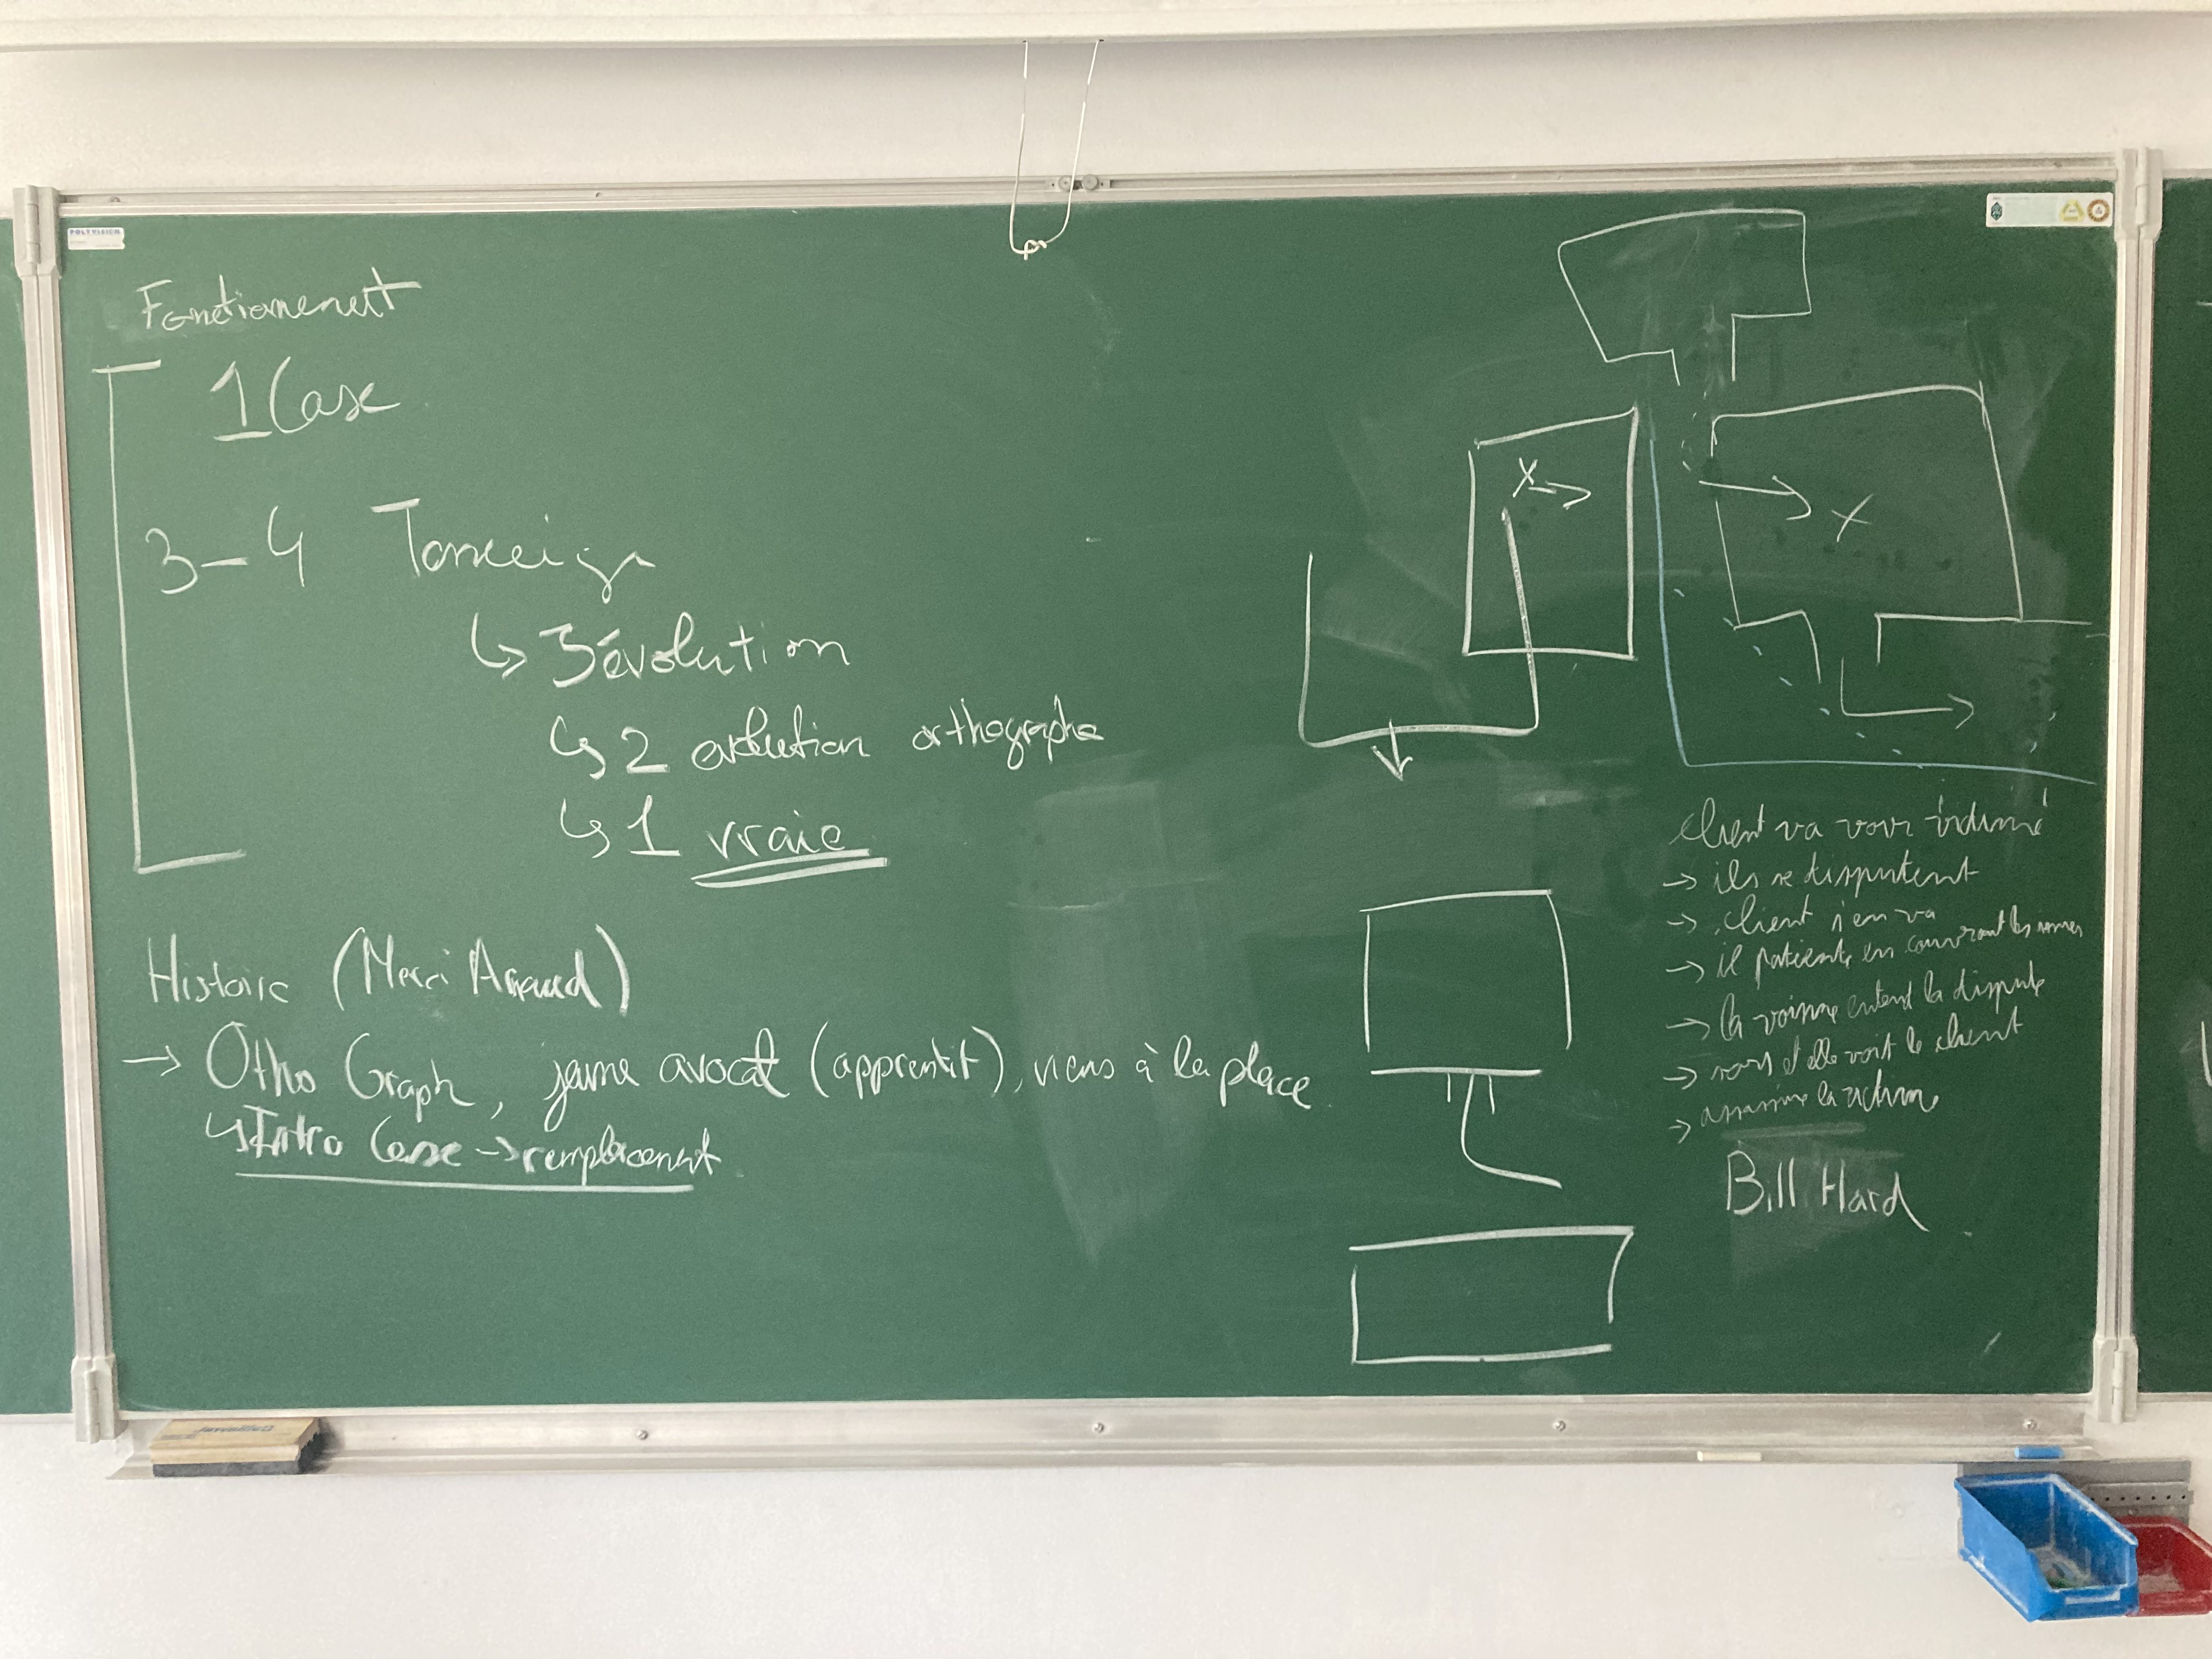 POLYVISION
Fonctionement
1 Case
3-4 Temoign
↳ 3 évolution
↳ 2 évolution orthographe
↳ 1 vraie
Histoire (Merci Arnaud)
→ Otho Graph, jeune avocat (apprentit), viens à la place
↳ Intro Case → remplacement
Client va voir victime
→ ils se disputent
→ client s'en va
→ il patiente en
→ la voisine entend la dispute
→ sort et elle voit le client
→ assassine la victime
Bill Hard